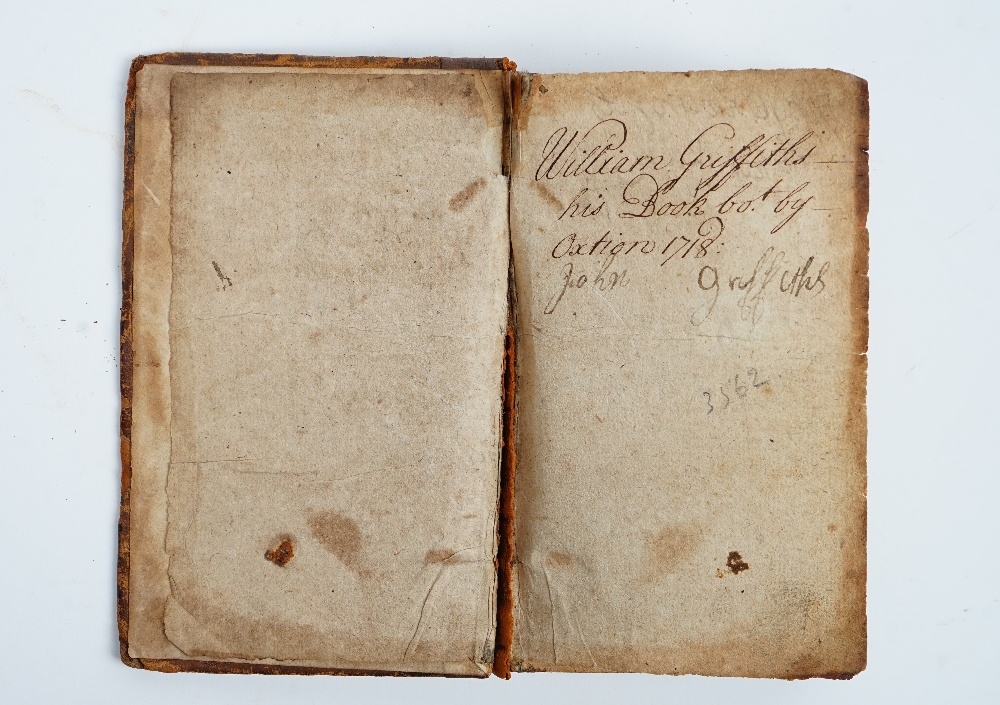 William Griffiths
his Book bo.t by
Oxtion 1718:
John Griffiths
3562